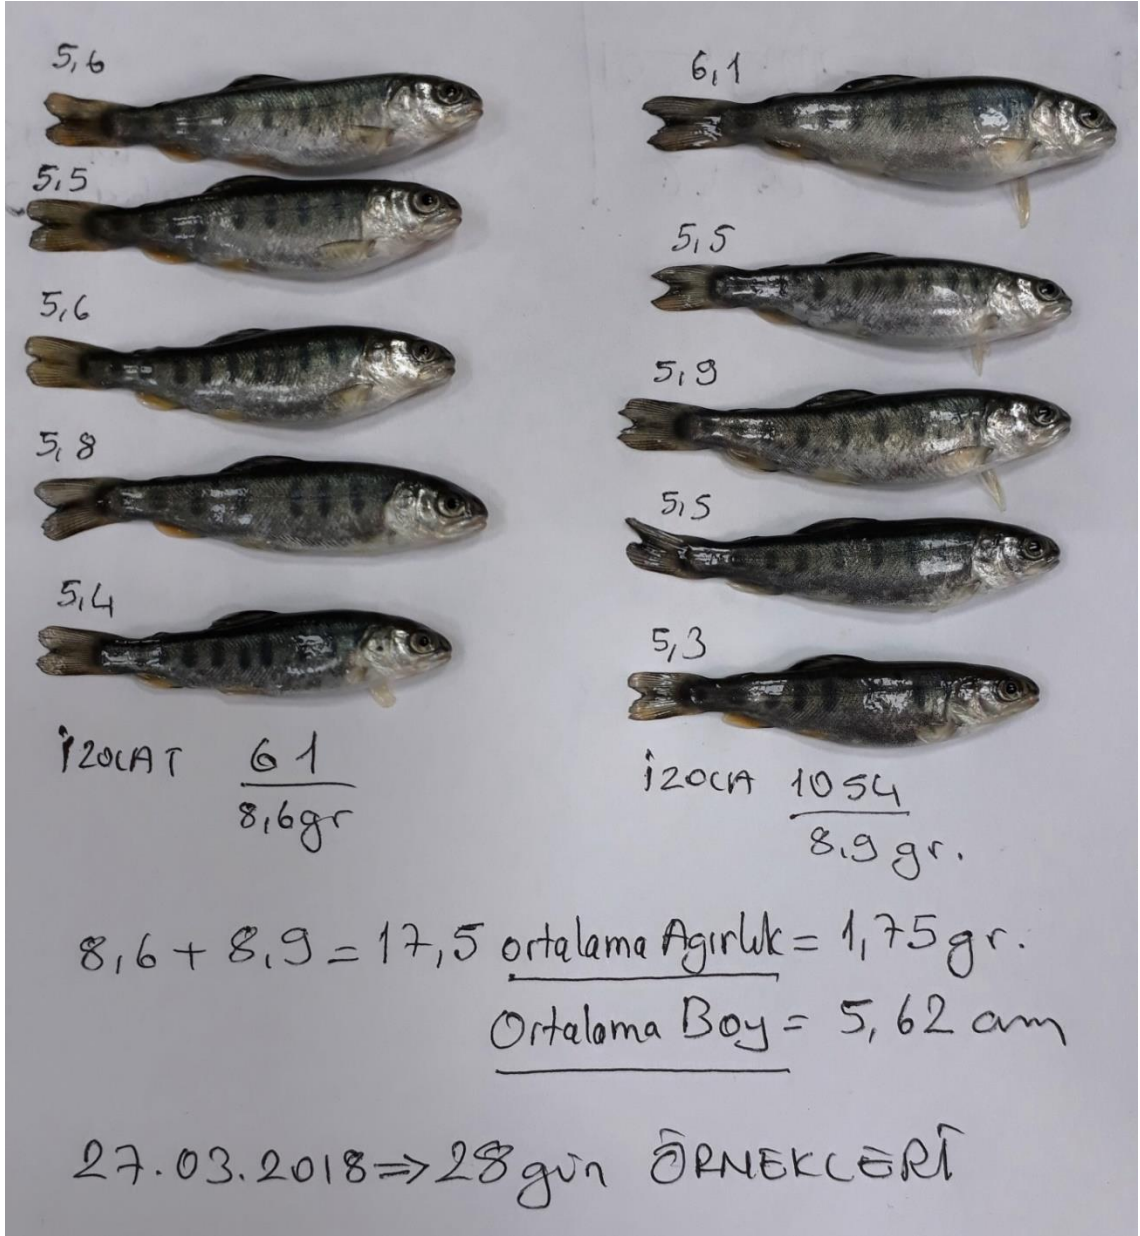 5,6
5,5
5,6
5,8
5,4
İZOLAT 61
8,6gr
6,1
5,5
5,9
5,5
5,3
İZOLA 1054
8,9 gr.
8,6 + 8,9 = 17,5 ortalama Agırlık = 1,75 gr.
Ortalama Boy = 5,62 cm
27.03.2018 => 28 gün ÖRNEKLERİ